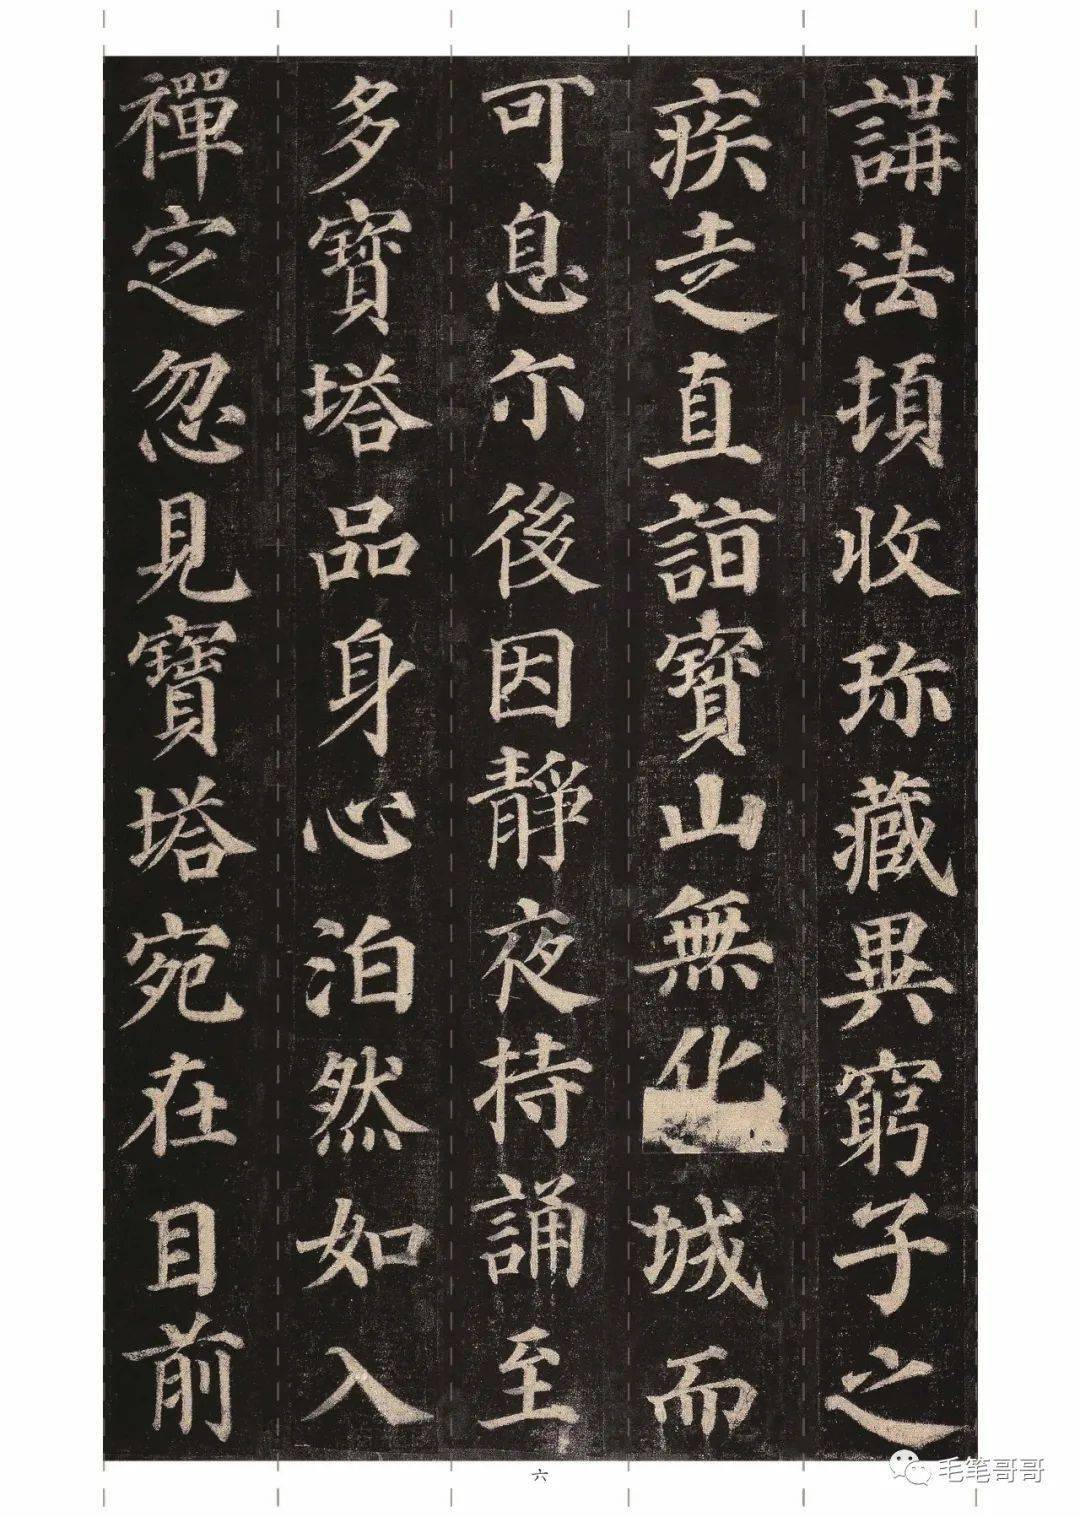 講法頓收珎藏異窮子之
疾走直詣寳山無化城而
可息尒後因靜夜持誦至
多寳塔品身心泊然如入
禪定忽見寳塔宛在目前
六
毛笔哥哥